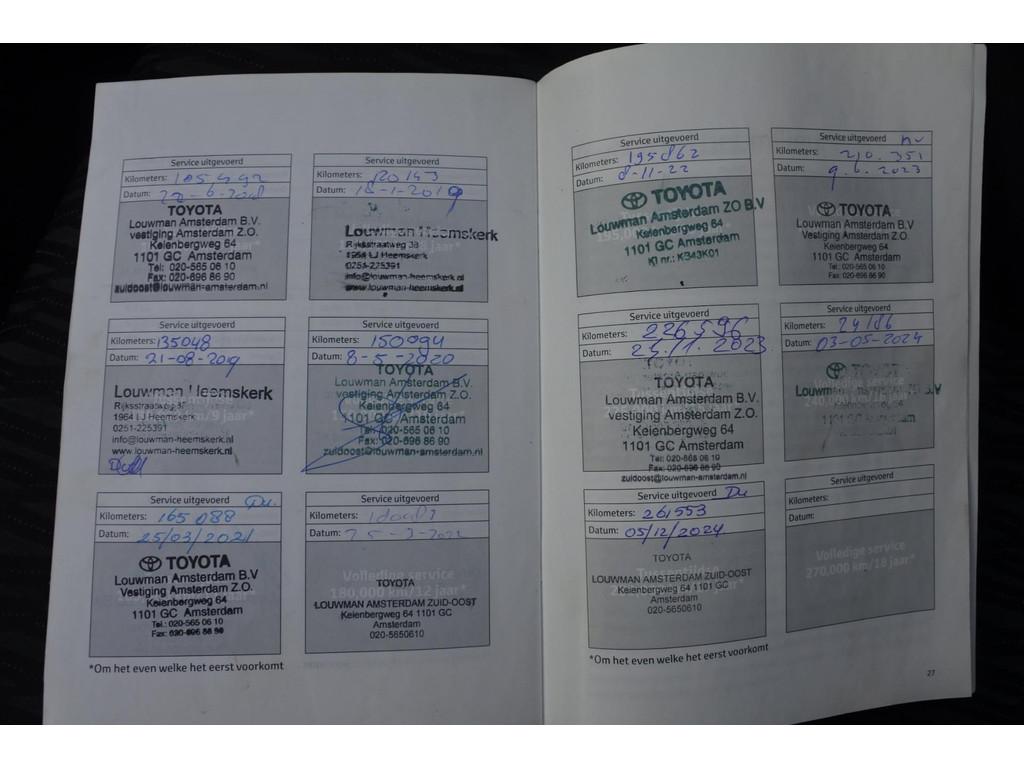 Service uitgevoerd
Kilometers: 105492
Datum: 22-6-2018
TOYOTA
Louwman Amsterdam B.V.
vestiging Amsterdam Z.O.
Keienbergweg 64
1101 GC Amsterdam
Tel: 020-565 06 10
Fax: 020-696 86 90
zuidoost@louwman-amsterdam.nl
Service uitgevoerd
Kilometers: 120143
Datum: 18-1-2019
Louwman Heemskerk
Rijksstraatweg 38
1964 LJ Heemskerk
0251-225391
info@louwman-heemskerk.nl
www.louwman-heemskerk.nl
Service uitgevoerd
Kilometers: 135048
Datum: 21-08-2019
Louwman Heemskerk
Rijksstraatweg
1964 LJ Heemskerk
0251-225391
info@louwman-heemskerk.nl
www.louwman-heemskerk.nl
Service uitgevoerd
Kilometers: 150094
Datum: 8-5-2020
TOYOTA
Louwman Amsterdam B.V.
vestiging Amsterdam Z.O.
Keienbergweg 64
1101 GC Amsterdam
Tel: 020-565 06 10
Fax: 020-696 86 90
zuidoost@louwman-amsterdam.nl
Service uitgevoerd
Kilometers: 165088
Datum: 25/03/2021
TOYOTA
Louwman Amsterdam B.V
Vestiging Amsterdam Z.O.
Keienbergweg 64
1101 GC Amsterdam
Tel.: 020-565 06 10
Fax: 020-696 86 90
Service uitgevoerd
Kilometers:
Datum:
Volledige service
180,000 km/12 jaar*
TOYOTA
LOUWMAN AMSTERDAM ZUID-OOST
Keienbergweg 64 1101 GC
Amsterdam
020-5650610
*Om het even welke het eerst voorkomt
Service uitgevoerd
Kilometers: 195862
Datum: 8-11-22
TOYOTA
Louwman Amsterdam ZO B.V
Keienbergweg 64
1101 GC Amsterdam
Kl nr.: K343K01
Service uitgevoerd
Kilometers: 210.351
Datum: 9.6.2023
TOYOTA
Louwman Amsterdam B.V
Vestiging Amsterdam Z.O.
Keienbergweg 64
1101 GC Amsterdam
Tel.: 020-565 06 10
Fax: 020-696 86 90
Service uitgevoerd
Kilometers: 226596
Datum: 23.11.2023
TOYOTA
Louwman Amsterdam B.V.
vestiging Amsterdam Z.O.
Keienbergweg 64
1101 GC Amsterdam
Tel: 020-565 06 10
Fax: 020-696 86 90
zuidoost@louwman-amsterdam.nl
Service uitgevoerd
Kilometers:
Datum: 03-05-2024
TOYOTA
Louwman
1101 GC Amsterdam
Service uitgevoerd
Kilometers: 261553
Datum: 05/12/2024
TOYOTA
LOUWMAN AMSTERDAM ZUID-OOST
Keienbergweg 64 1101 GC
Amsterdam
020-5650610
Service uitgevoerd
Kilometers:
Datum:
Volledige service
270,000 km/18 jaar*
*Om het even welke het eerst voorkomt
27